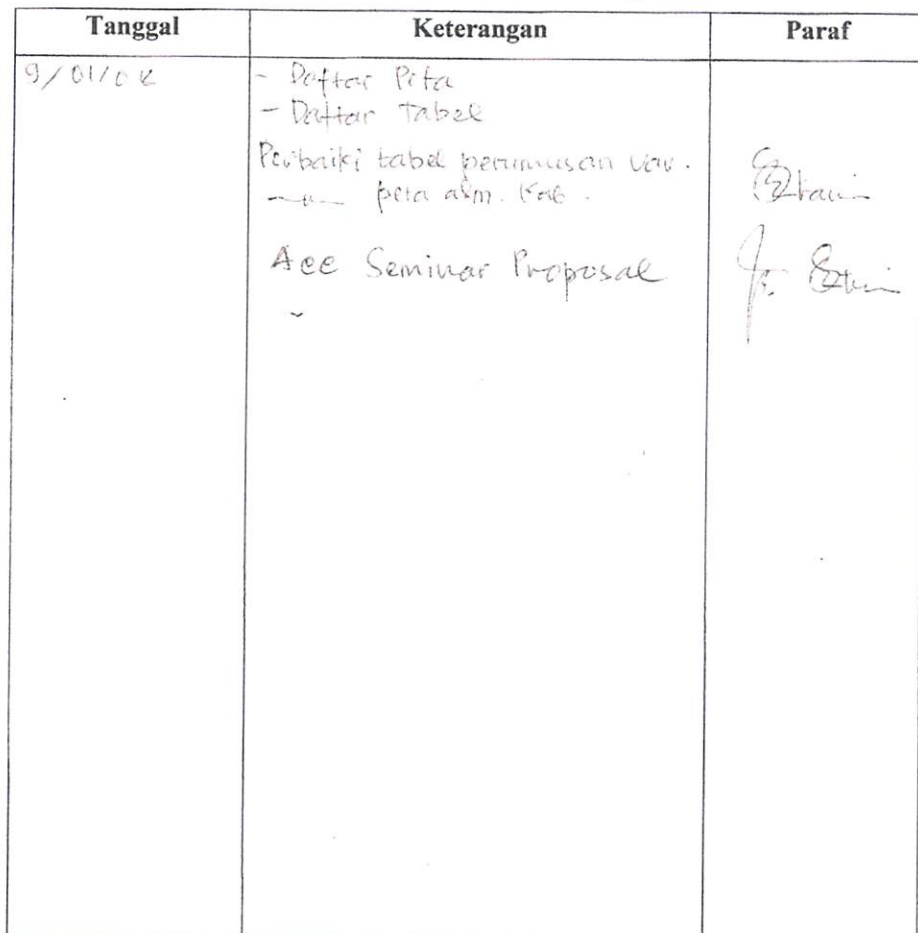 Tanggal Keterangan Paraf
9/01/0
- Daftar Peta
- Daftar Tabel
Perbaiki tabel perumusan var.
—〃— peta adm. Kab.
Acc Seminar Proposal